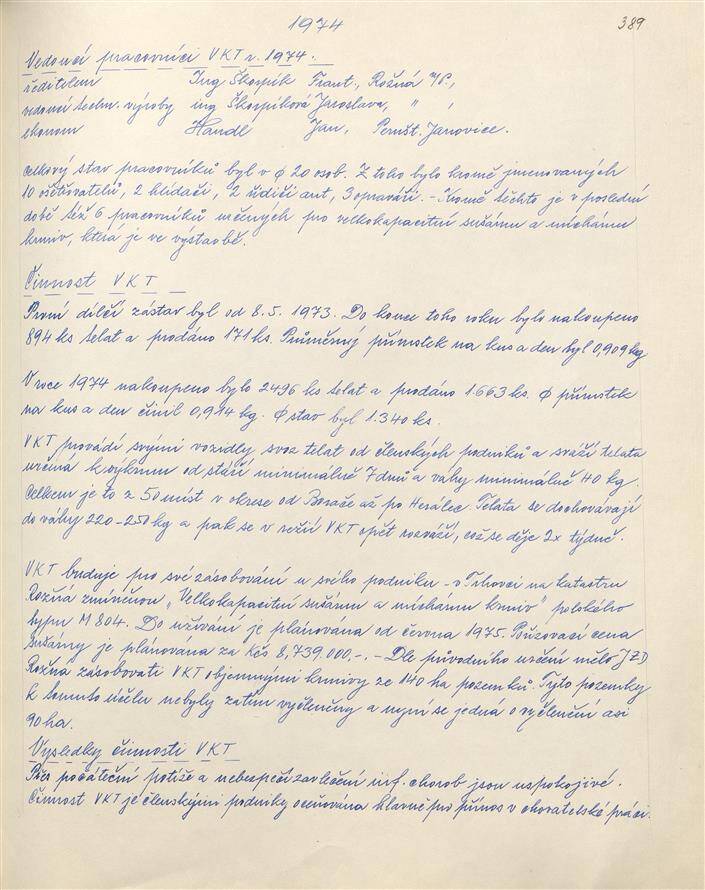 1974
389
Vedoucí pracovníci VKT r. 1974.
ředitelem Ing Škorpík Frant., Rožná
vedoucí techn. výroby ing Škorpíková Jaroslava, " ,
ekonom Handl Jan, Pernšt. Janovice.
Celkový stav pracovníků byl v ∅ 20 osob. Z toho bylo kromě jmenovaných
10 ošetřovatelů, 2 hlídači, 2 řidiči aut, 3 opraváři. - Kromě těchto je v poslední
době též 6 pracovníků určených pro velkokapacitní sušárnu a míchárnu
krmiv, která je ve výstavbě.
Činnost VKT
První dílčí zástav byl od 8. 5. 1973. Do konce toho roku bylo nakoupeno
894 ks telat a prodáno 171 ks. Průměrný přírůstek na kus a den byl 0,909 kg
V roce 1974 nakoupeno bylo 2496 ks telat a prodáno 1.663 ks. ∅ přírůstek
na kus a den činil 0,914 kg. ∅ stav byl 1.340 ks.
VKT provádí svými vozidly svoz telat od členských podniků a sváží telata
určená k výkrmu od stáří minimálně 7 dnů a váhy minimálně 40 kg.
Celkem je to z 50 míst v okrese od Borače až po Herálec. Telata se dochovávají
do váhy 220-250 kg a pak se v režii VKT opět rozváží, což se děje 2x týdně.
VKT buduje pro své zásobování u svého podniku - v Trhovci na katastru
Rožná zmíněnou „Velkokapacitní sušárnu a míchárnu krmiv" polského
typu M 804. Do užívání je plánována od června 1975. Pořizovací cena
sušárny je plánována za Kčs 8,739.000,-. - Dle původního určení mělo JZD
Rožná zásobovati VKT objemnými krmivy ze 140 ha pozemků. Tyto pozemky
k tomuto účelu nebyly zatím vyčleněny a nyní se jedná o vyčlenění asi
90 ha.
Výsledky činnosti VKT
Přes počáteční potíže a nebezpečí zavlečení inf. chorob jsou uspokojivé.
Činnost VKT je členskými podniky oceňována hlavně pro přínos v chovatelské práci.